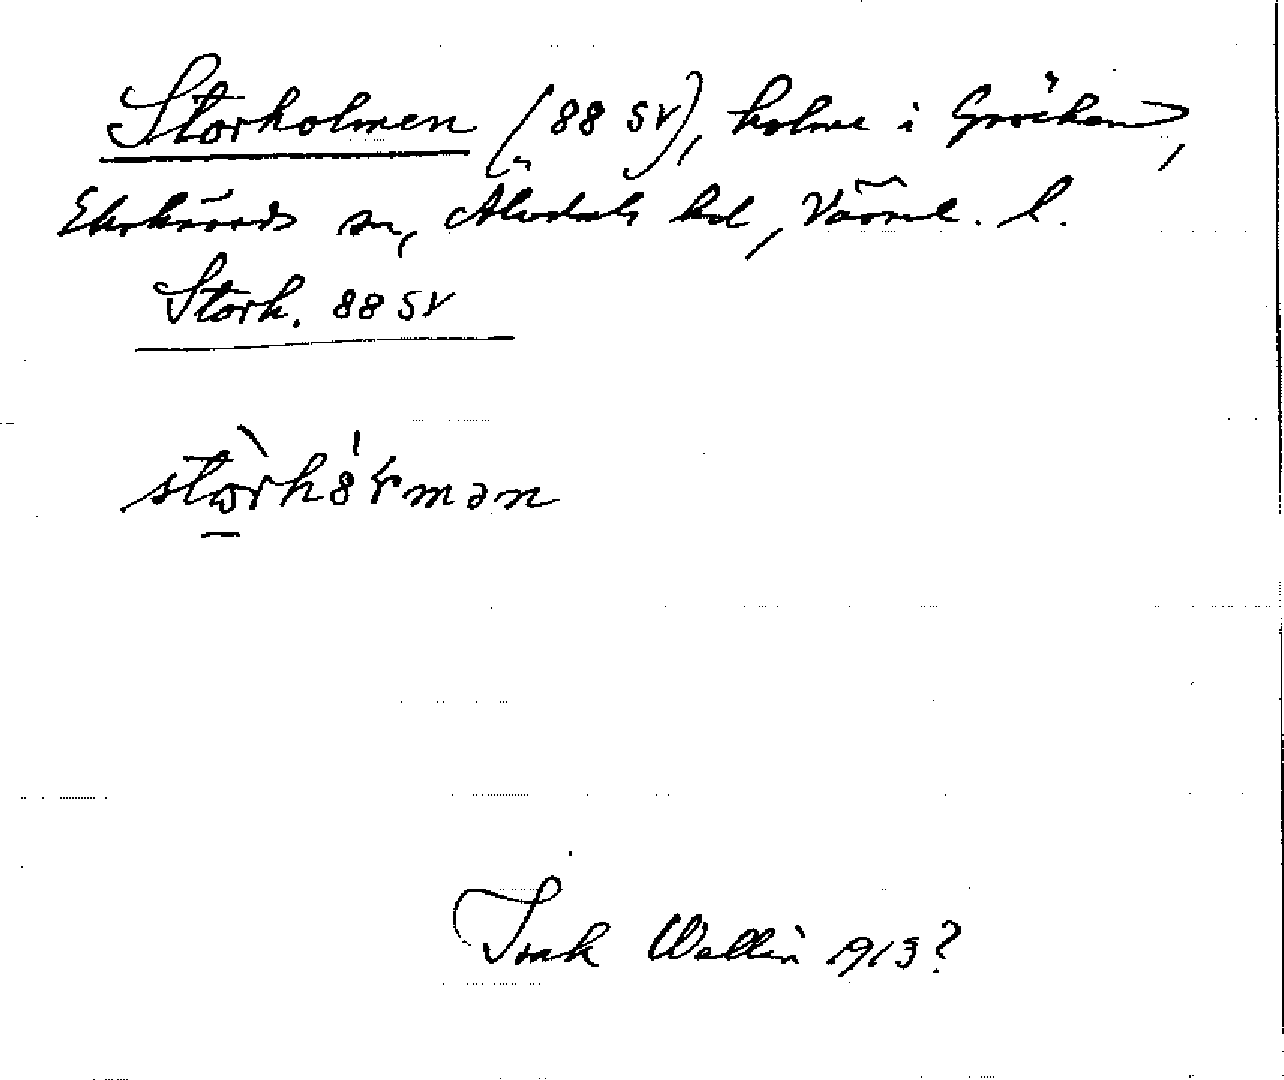 Storholmen (88 SV), holme i Gröcken,
Ekshärads sn, Älvdals hd, Värml. l.
Stork. 88 SV
stòrhó̤ɽmən
Isak Wallin 1913?